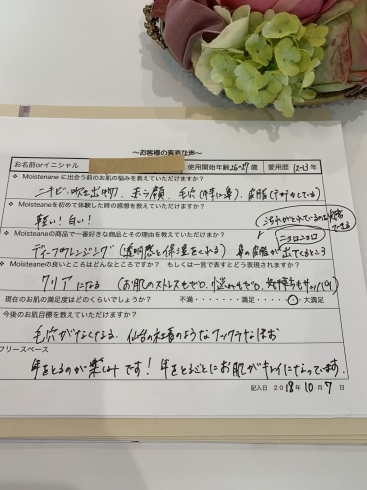 ～お客様の素直な声～
お名前orイニシャル
使用開始年齢26~27歳 愛用歴 12~13年
❖ Moisteaneに出会う前のお肌の悩みを教えていただけますか？
ニキビ・吹き出物、赤ら顔、毛穴(特に鼻)、皮脂(テカテカしている)
❖ Moisteaneを初めて体験した時の感想を教えていただけますか？
軽い！白い！
❖ Moisteaneの商品で一番好きな商品とその理由を教えていただけますか？
ディープクレンジング(透明感と保湿をくれる) 鼻の皮脂が ニョロニョロ 出てくるところ
❖ Moisteaneの良いところはどんなところですか？ もしくは一言で表すとどう表現されますか？
クリアになる (お肌のストレスもゼロ、
現在のお肌の満足度はどのくらいでしょうか？ 不満・・・・・・・満足・・・・・大満足
今後のお肌目標を教えていただけますか？
毛穴がなくなる、仙台の社長のような
フリースペース
年をとるのが楽しみです！年をとるごとにお肌がキレイになっています。
記入日 2018年10月7日